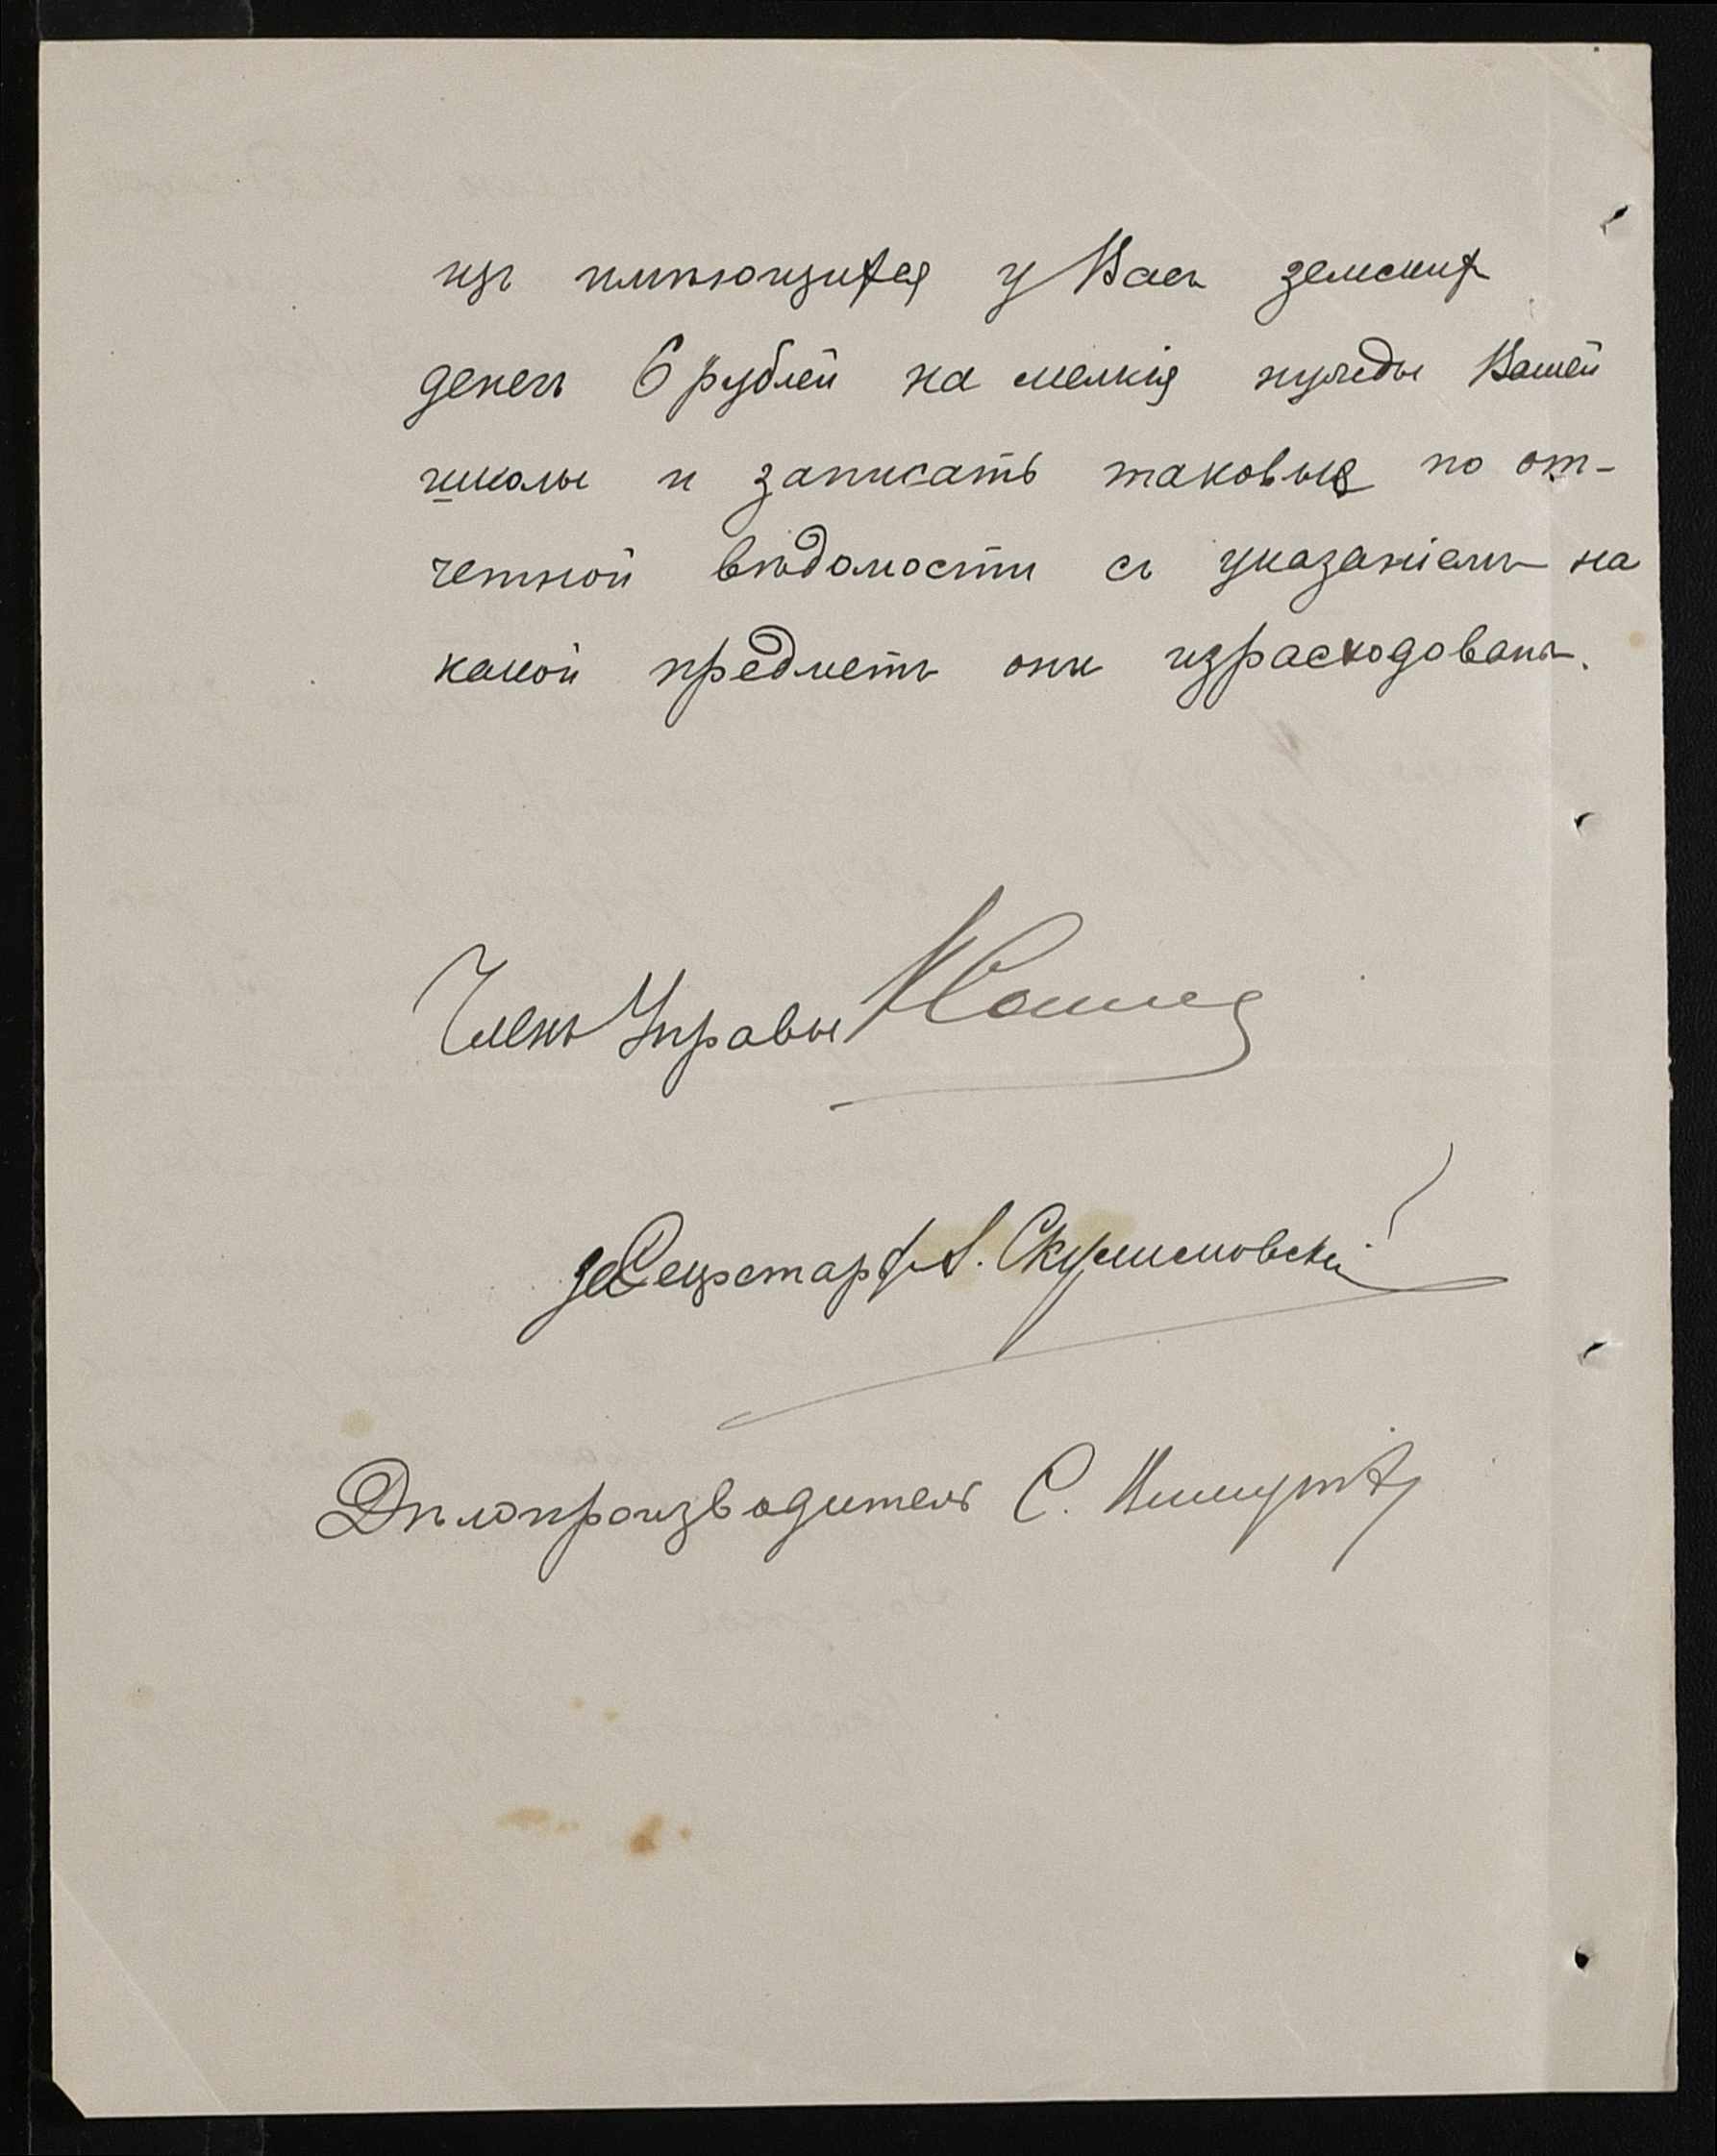 изъ имѣющихся у Васъ земских
денегъ 6 рублей на мелкія нужды Вашей
школы и записать таковыя по от-
четной вѣдомости съ указаніемъ на
какой предметъ они израсходованы.
Членъ Управы
за Секретаря А.
Дѣлопроизводитель С.